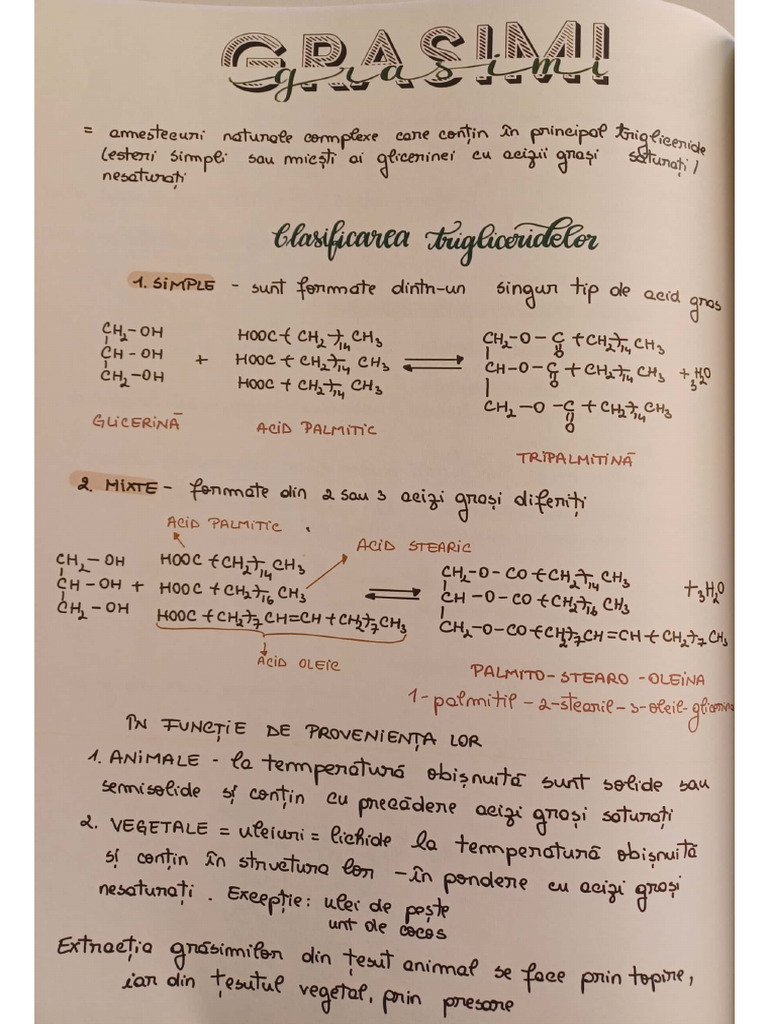 GRASIMI
grasimi
= amestecuri naturale complexe care conțin în principal trigliceride
(esteri simpli sau micști ai glicerinei cu acizii grași saturați/
nesaturați
Clasificarea trigliceridelor
1. SIMPLE - sunt formate dintr-un singur tip de acid gras
CH₂-OH HOOC-(CH₂)₁₄CH₃ CH₂-O-C(=O)-(CH₂)₁₄CH₃
CH-OH + HOOC-(CH₂)₁₄CH₃ ⇌ CH-O-C(=O)-(CH₂)₁₄CH₃ + 3H₂O
CH₂-OH HOOC-(CH₂)₁₄CH₃ CH₂-O-C(=O)-(CH₂)₁₄CH₃
GLICERINĂ ACID PALMITIC TRIPALMITINĂ
2. MIXTE - formate din 2 sau 3 acizi grași diferiți
ACID PALMITIC ACID STEARIC
CH₂-OH HOOC-(CH₂)₁₄CH₃ CH₂-O-CO-(CH₂)₁₄CH₃
CH-OH + HOOC-(CH₂)₁₆CH₃ ⇌ CH-O-CO-(CH₂)₁₆CH₃ + 3H₂O
CH₂-OH HOOC-(CH₂)₇CH=CH-(CH₂)₇CH₃ CH₂-O-CO-(CH₂)₇CH=CH-(CH₂)₇CH₃
ACID OLEIC
PALMITO-STEARO-OLEINA
1-palmitil-2-stearil-3-oleil-glicerina
ÎN FUNCȚIE DE PROVENIENȚA LOR
1. ANIMALE - la temperatură obișnuită sunt solide sau
semisolide și conțin cu precădere acizi grași saturați
2. VEGETALE = uleiuri = lichide la temperatură obișnuită
și conțin în structura lor -în pondere cu acizi grași
nesaturați. Excepție: ulei de pește
unt de cocos
Extracția grăsimilor din țesut animal se face prin topire,
iar din țesutul vegetal, prin presare